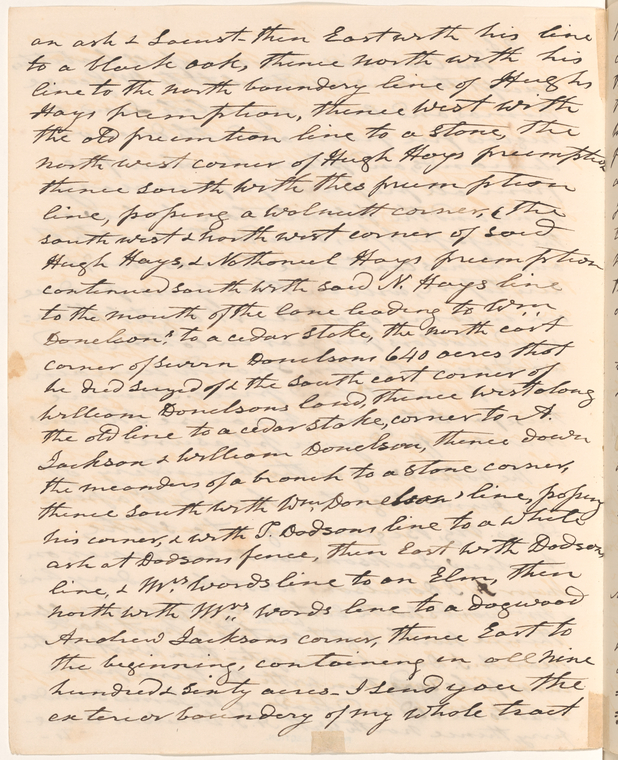 an ash & Locust - then East with his line
to a black oak, thence north with his
line to the north boundery line of Hughs
Hays premption, thence West with
the old preemtion line to a Stone, the
north west corner of Hugh Hays preemption
thence south with this preemption
line, passing a Walnutt corner, & the
south west & north west corner of said
Hugh Hays, & Nathaniel Hays preemption
continued south with said N. Hays line
to the mouth of the lane leading to Wm
Donelsons. to a cedar Stake, the north east
corner of Severn Donelsons 640 acres that
he died seized of & the south east corner of
William Donelsons land, thence west along
the old line to a cedar stake, corner to A.
Jackson & William Donelson, thence down
the meanders of a branch to a stone corner,
thence south with Wm. Donelsons line, passing
his corner, & with T. Dodsons line to a white
ash at Dodsons fence, then East with Dodsons
line, & Mrs Words line to an Elm, then
north with Mrs Words line to a dogwood
Andrew Jacksons corner, thence East to
the beginning, containing in all nine
hundred & sixty acres - I send you the
exterior boundery of my whole tract